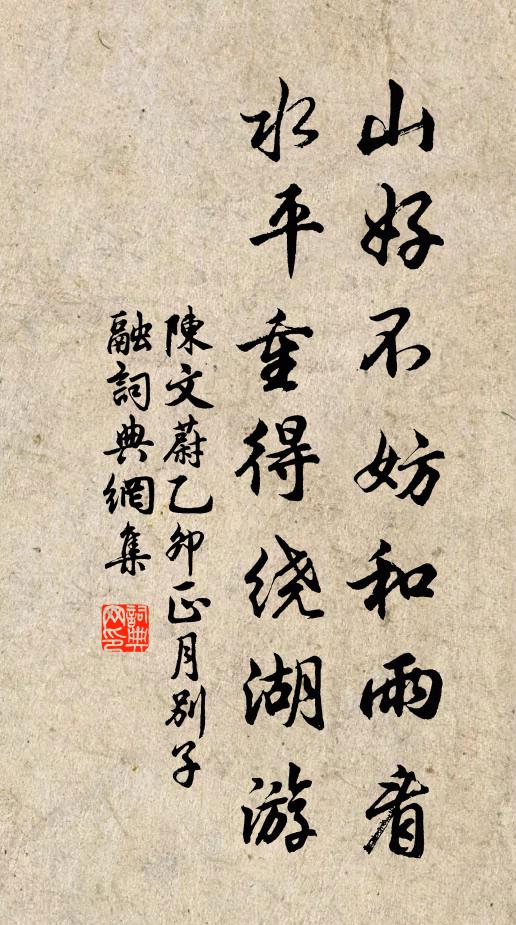 山好不妨和雨看
水平重得绕湖游
陳文蔚乙卯正月别子
融詞典網集
詞典网印